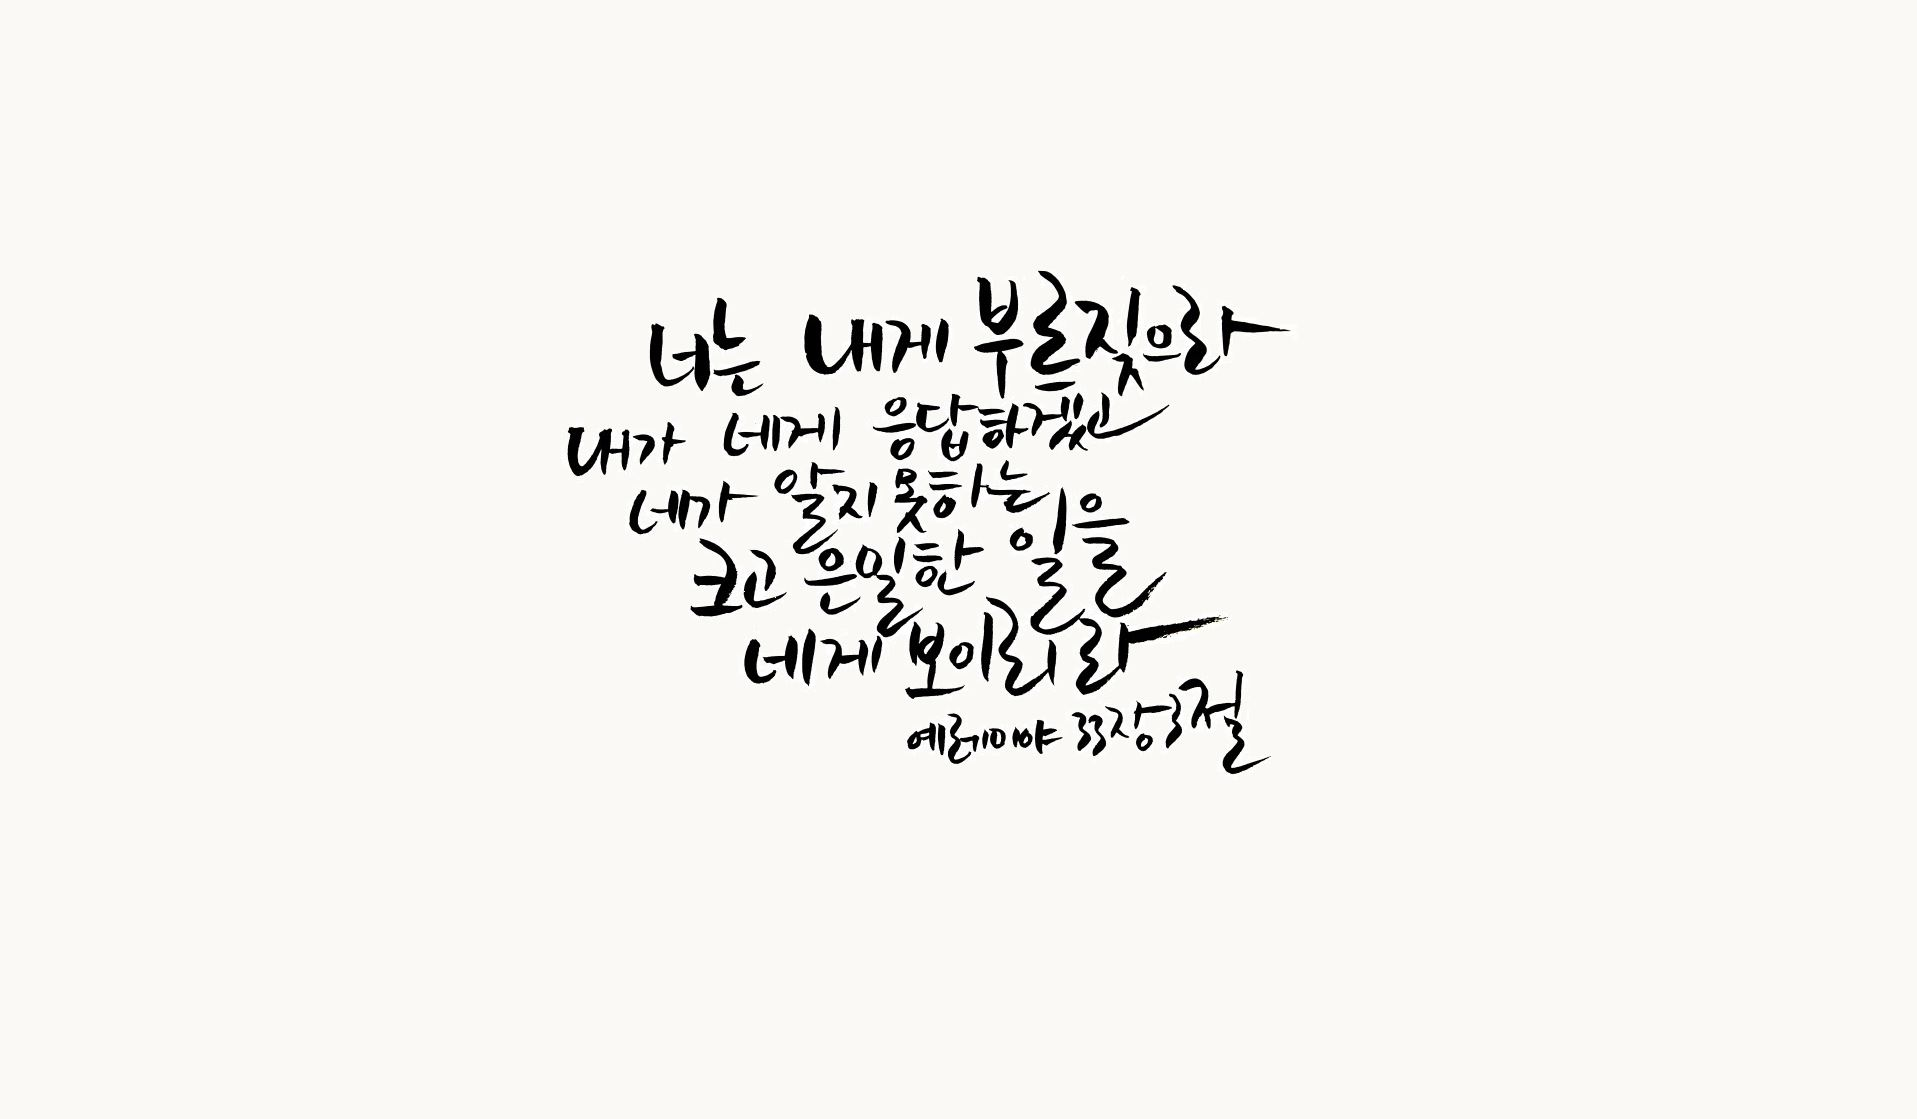 너는 내게 부르짖으라
내가 네게 응답하겠고
네가 알지 못하는
크고 은밀한 일을
네게 보이리라
예레미야 33장3절